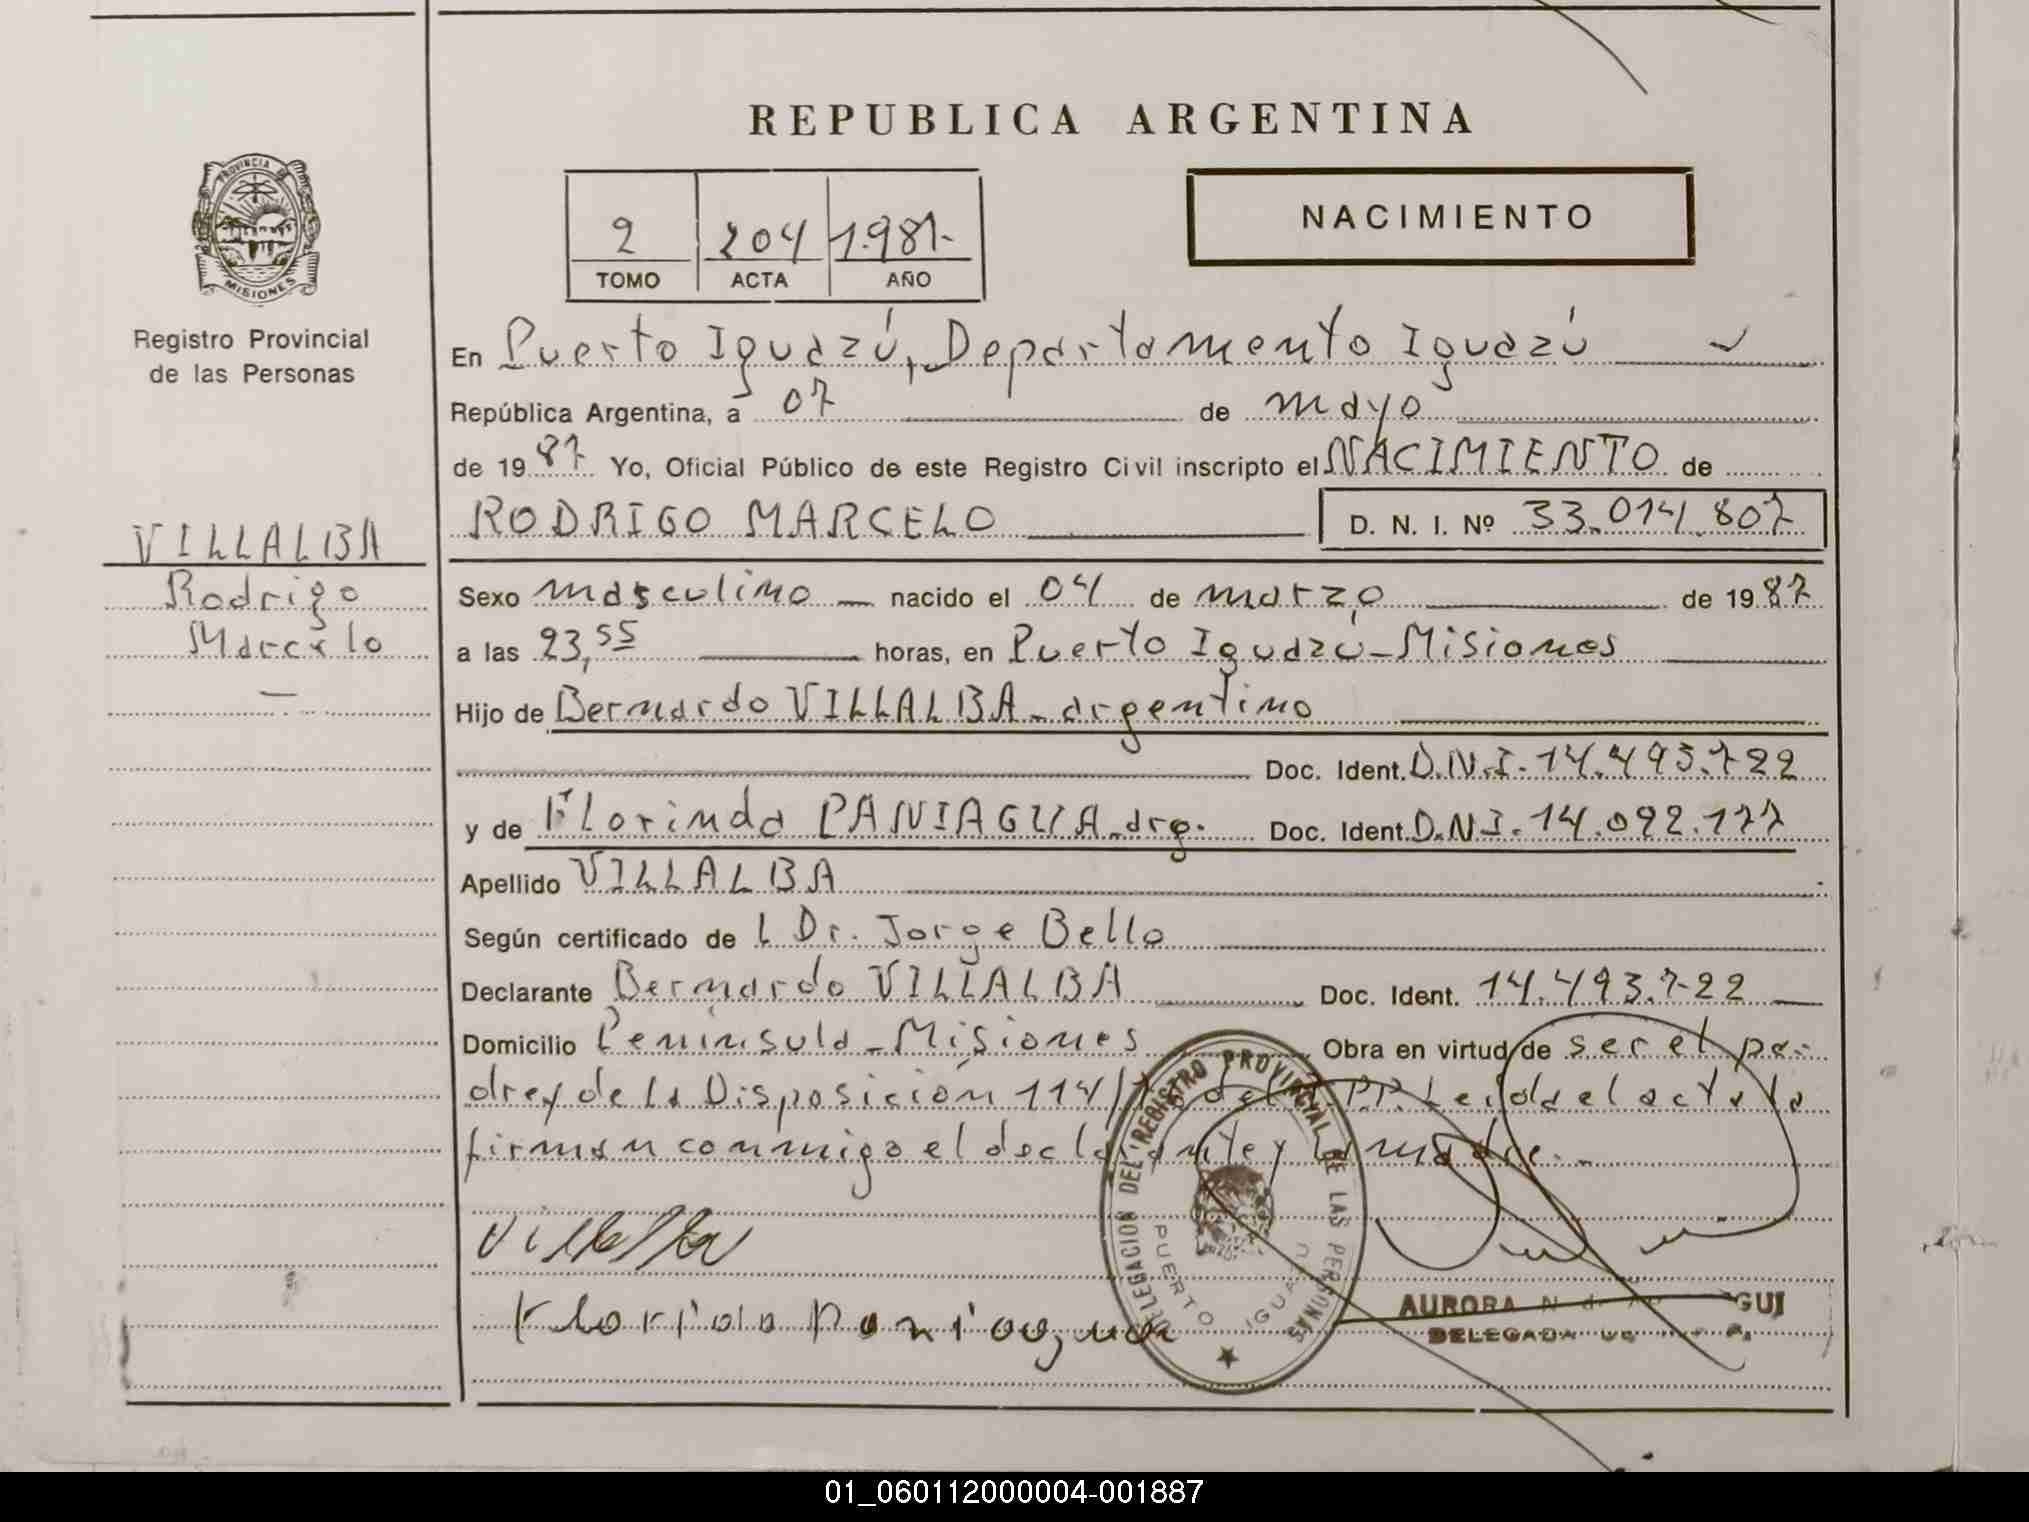 REPUBLICA ARGENTINA
PROVINCIA DE
MISIONES
Registro Provincial
de las Personas
2 204 1.987.-
TOMO ACTA AÑO
NACIMIENTO
En Puerto Iguazú, Departamento Iguazú
República Argentina, a 07 de mayo
de 19 87 Yo, Oficial Público de este Registro Civil inscripto el NACIMIENTO de
RODRIGO MARCELO D. N. I. Nº 33.014.807
VILLALBA
Rodrigo
Marcelo
Sexo masculino nacido el 04 de marzo de 19 87
a las 23,55 horas, en Puerto Iguazú - Misiones
Hijo de Bernardo VILLALBA - argentino
Doc. Ident. D.N.I. 14.493.722
y de Florinda PANIAGUA - arg. Doc. Ident. D.N.I. 14.092.177
Apellido VILLALBA
Según certificado de l Dr. Jorge Bello
Declarante Bernardo VILLALBA Doc. Ident. 14.493.722
Domicilio Península - Misiones Obra en virtud de ser el pa-
dre y de la Disposición 114/ del P.P. Leída el acta la
firman conmigo el declarante y la madre.-
Villalba
Florida Paniagua
DELEGACION DEL REGISTRO PROVINCIAL DE LAS PERSONAS
PUERTO IGUAZU
AURORA N. de GUI
DELEGADA
01_060112000004-001887